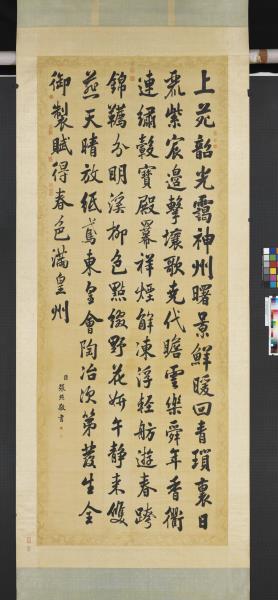 上苑韶光靄神州曙景鮮暖回青瑣裏日
麗紫宸邊擊壤歌堯代瞻雲樂舜年香衢
連繡轂寶殿羃祥煙解凍浮輕舫遊春跨
錦韉分明溪柳色點綴野花妍午靜來雙
燕天晴放紙鳶東皇會陶冶次第發生全
御製賦得春色滿皇州
臣張照敬書